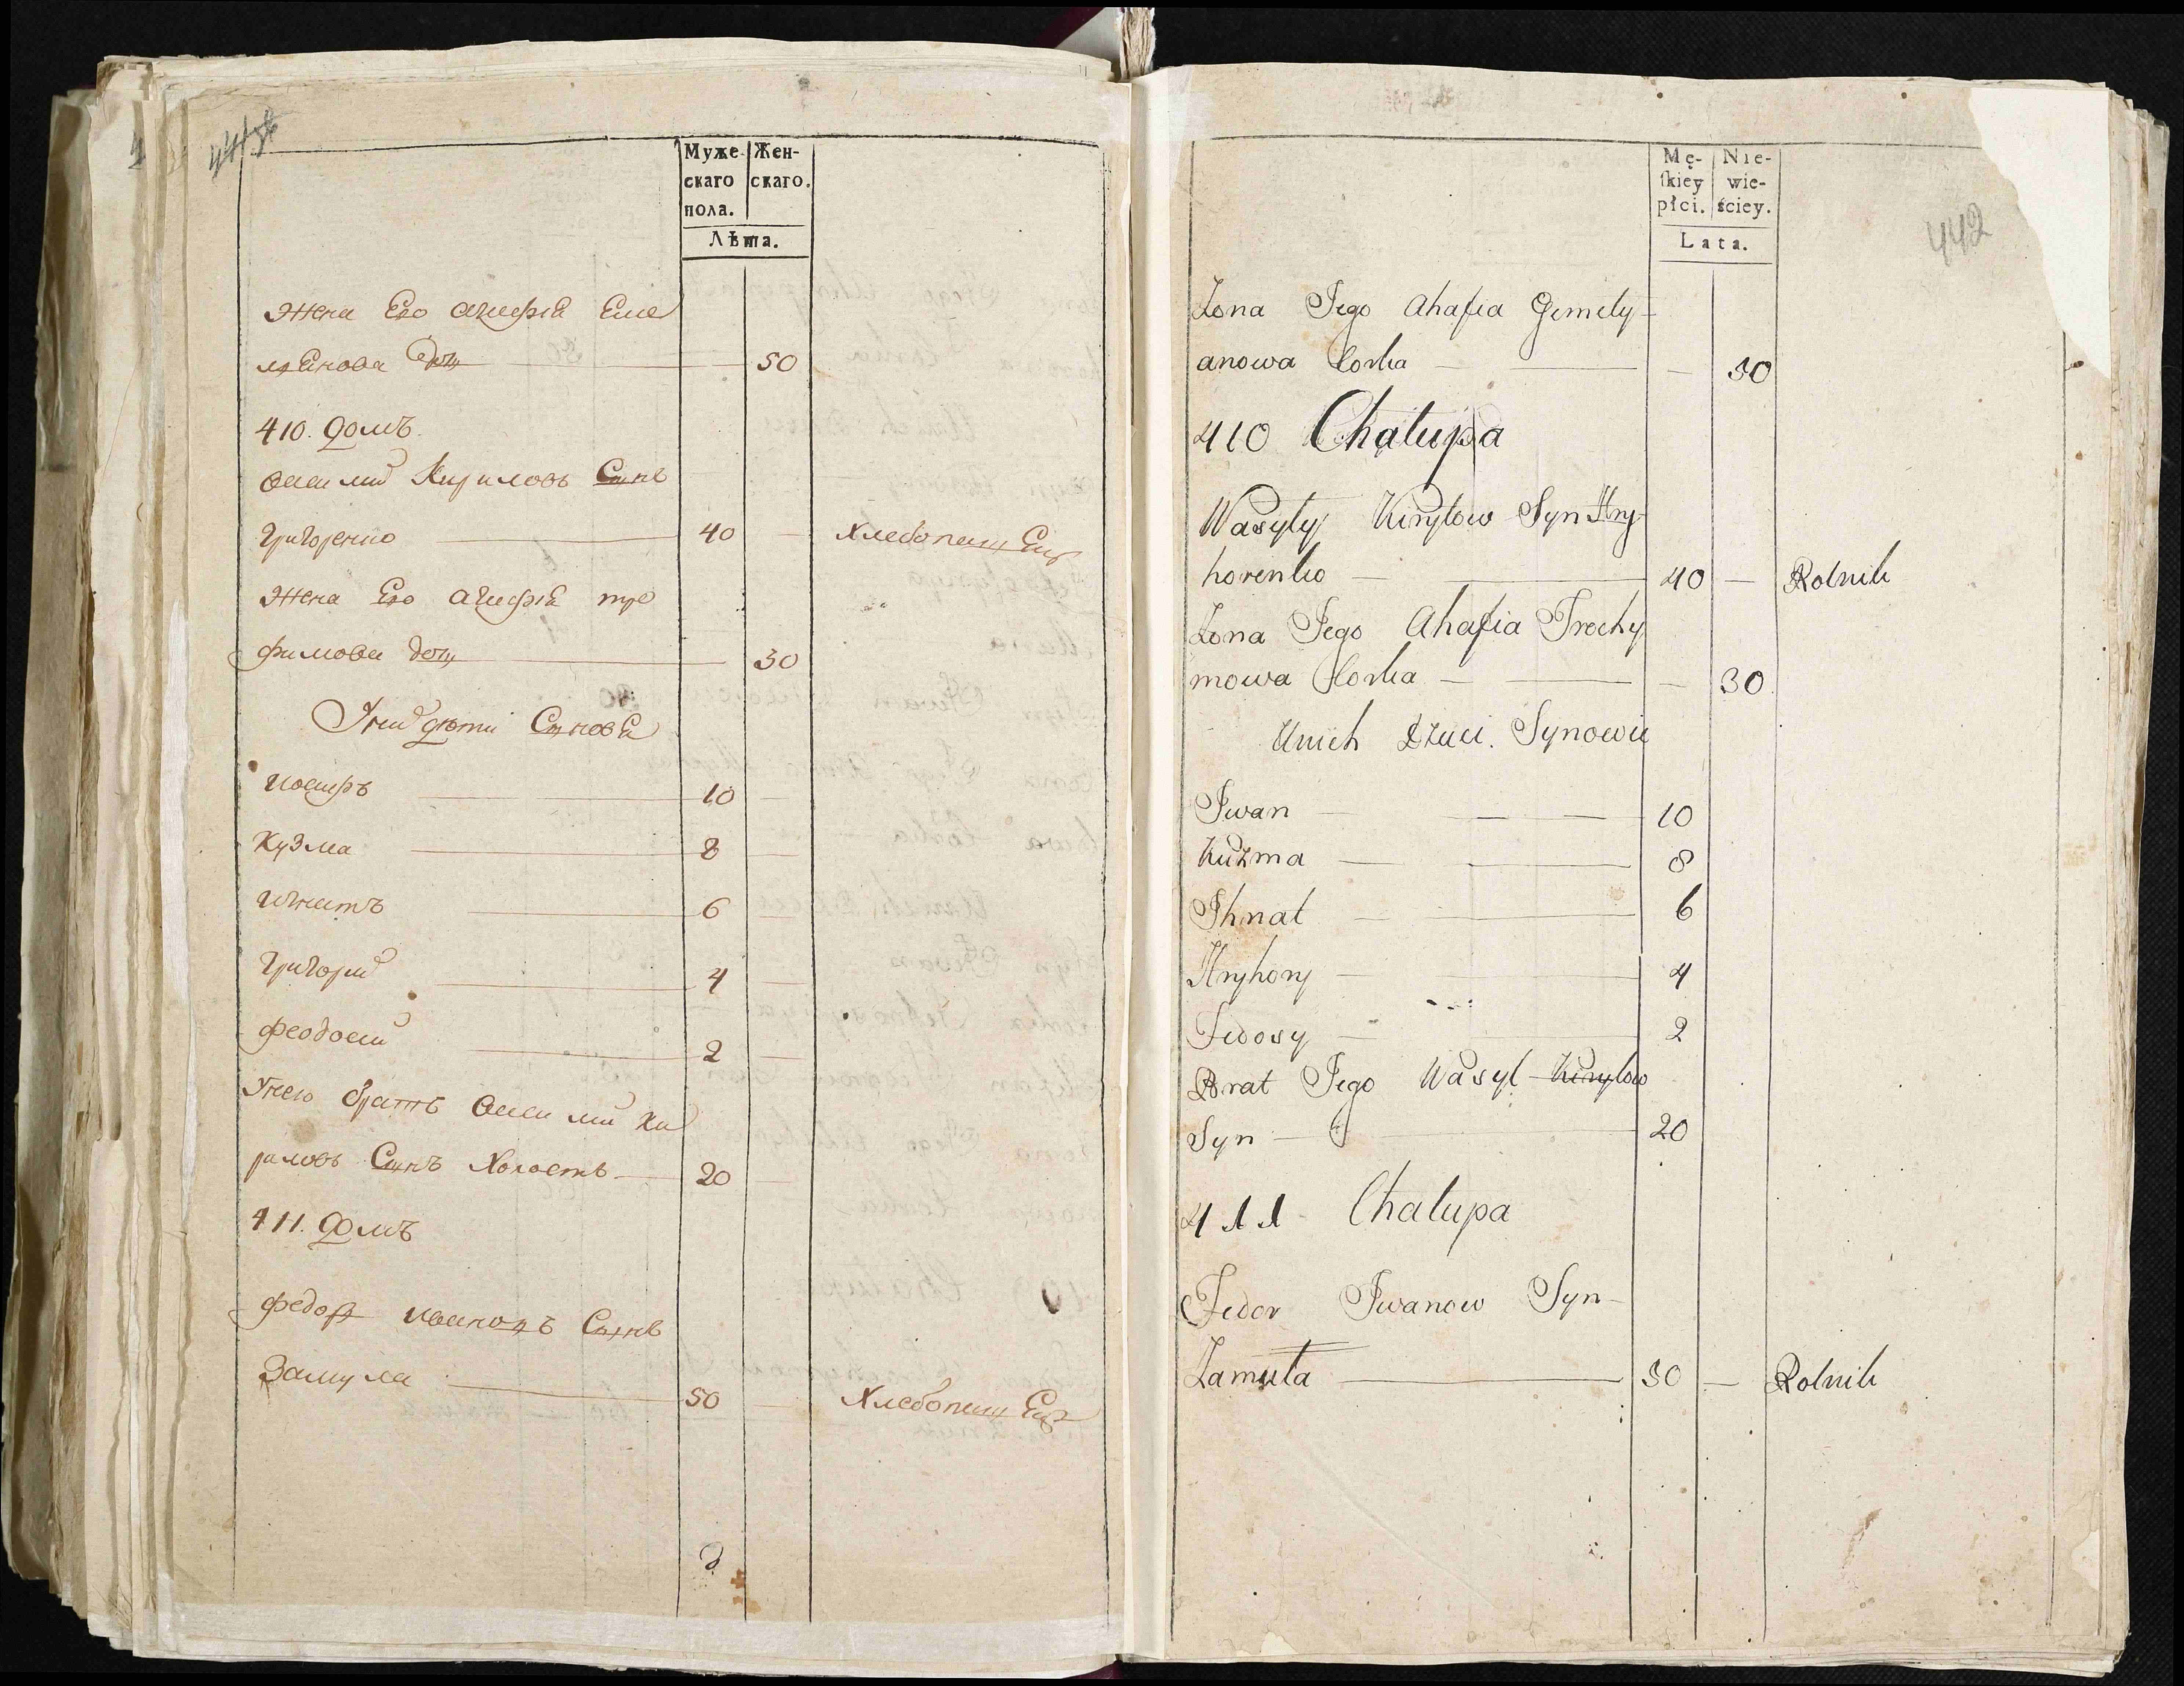 Муже
скаго
пола.
Жен-
скаго.
Лѣта.
жена Его агафія Еме
ляенова дочь 50
410. домъ
василий Кириловъ Сынъ
Григоренко 40 Хлебопашецъ
жена Его агафія тро
фимова дочь 30
У нид дѣти Сыновя
иосифъ 10
Кузма 8
игнатъ 6
Григорий 4
феодосий 2
У него братъ василий Ки
риловъ Сынъ Холостъ 20
411. домъ
федоръ ивановъ Сынъ
Замула 50 Хлебопашецъ
Mę-
skiey
płci.
Nie-
wie-
ściey.
Lata.
442
Zona Jego Ahafia Jemily-
anowa Corka 50
410 Chalupa
Wasyly Kirylow Syn Hry-
horenko 40 Rolnik
Zona Jego Ahafia Trochy
mowa Corka 30
Unich Dzieci Synowie
Iwan 10
Kuzma 8
Ihnat 6
Hryhory 4
Fedosy 2
Brat Jego Wasyl Kirylow
Syn 20
411 Chalupa
Fedor Iwanow Syn
Zamuła 50 Rolnik